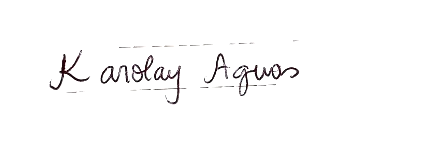 Karolay Aguas